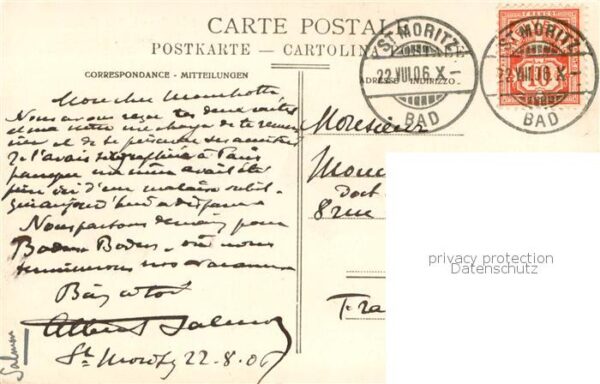 CARTE POSTALE
POSTKARTE — CARTOLINA
CORRESPONDANCE - MITTEILUNGEN
ADRESSE INDIRIZZO
ST. MORITZ
22.VIII.06.X-
BAD
ST. MORITZ
22.VIII.06.X-
BAD
FRANCO
10
Mon cher
Nous avons reçu tes deux cartes
et ma mère me charge de te remer
cier et de
Je l'avais télégraphié à Paris
parce que ma mère avait été
prise ici d'un malaise subit
qui aujourd'hui a disparu
Nous partons demain pour
Baden Baden - où nous
terminerons nos vacances
Bien à toi
Albert Salmon
St Moritz 22-8-06
Salmon
Monsieur
Doct
8 rue
privacy protection
Datenschutz